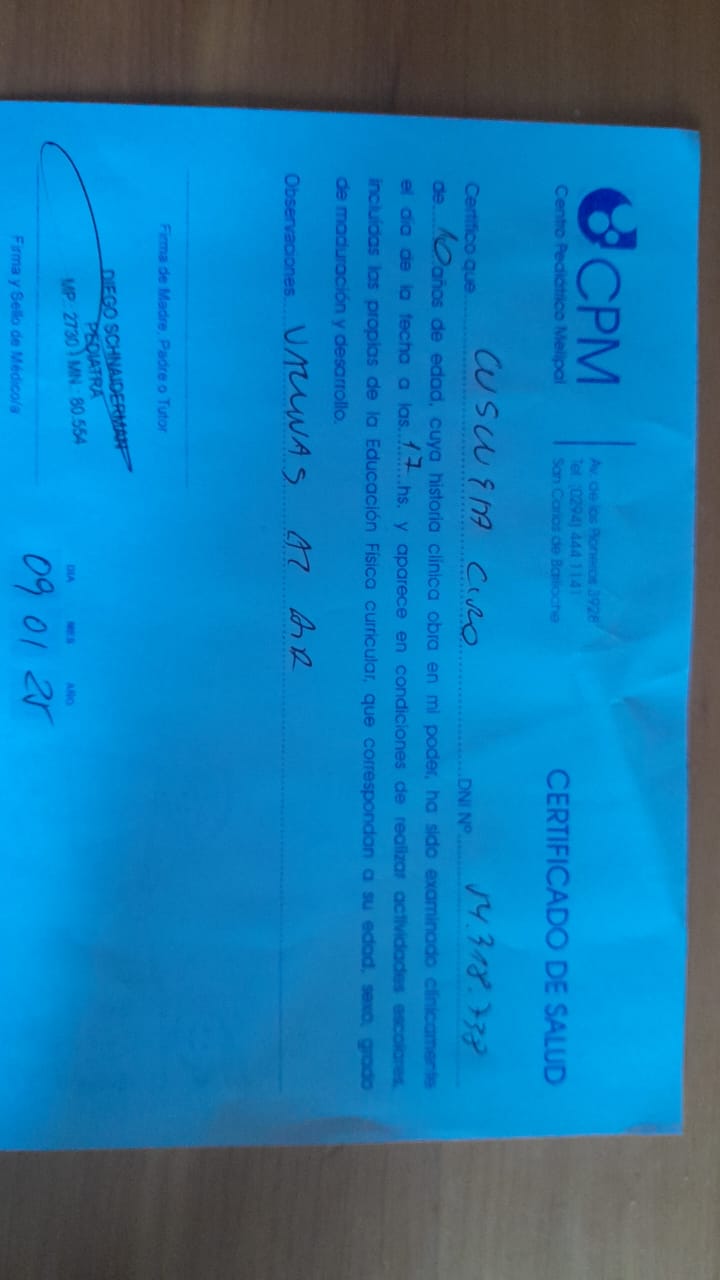 CPM
Centro Pediátrico Melipal
Av. de los Pioneros 3928
Tel. (0294) 444 1141
San Carlos de Bariloche
CERTIFICADO DE SALUD
Certifico que DNI Nº
de 10 años de edad, cuya historia clínica obra en mi poder, ha sido examinado clínicamente
el día de la fecha a las 17 hs. y aparece en condiciones de realizar actividades escolares,
incluídas las propias de la Educación Física curricular, que correspondan a su edad, sexo, grado
de maduración y desarrollo.
Observaciones VACUNAS AL DIA
Firma de Madre, Padre o Tutor
DIEGO SCHNAIDERMAN
PEDIATRA
MP. 2730 MN. 80.554
Firma y Sello de Médico/a
DIA MES AÑO
09 01 25